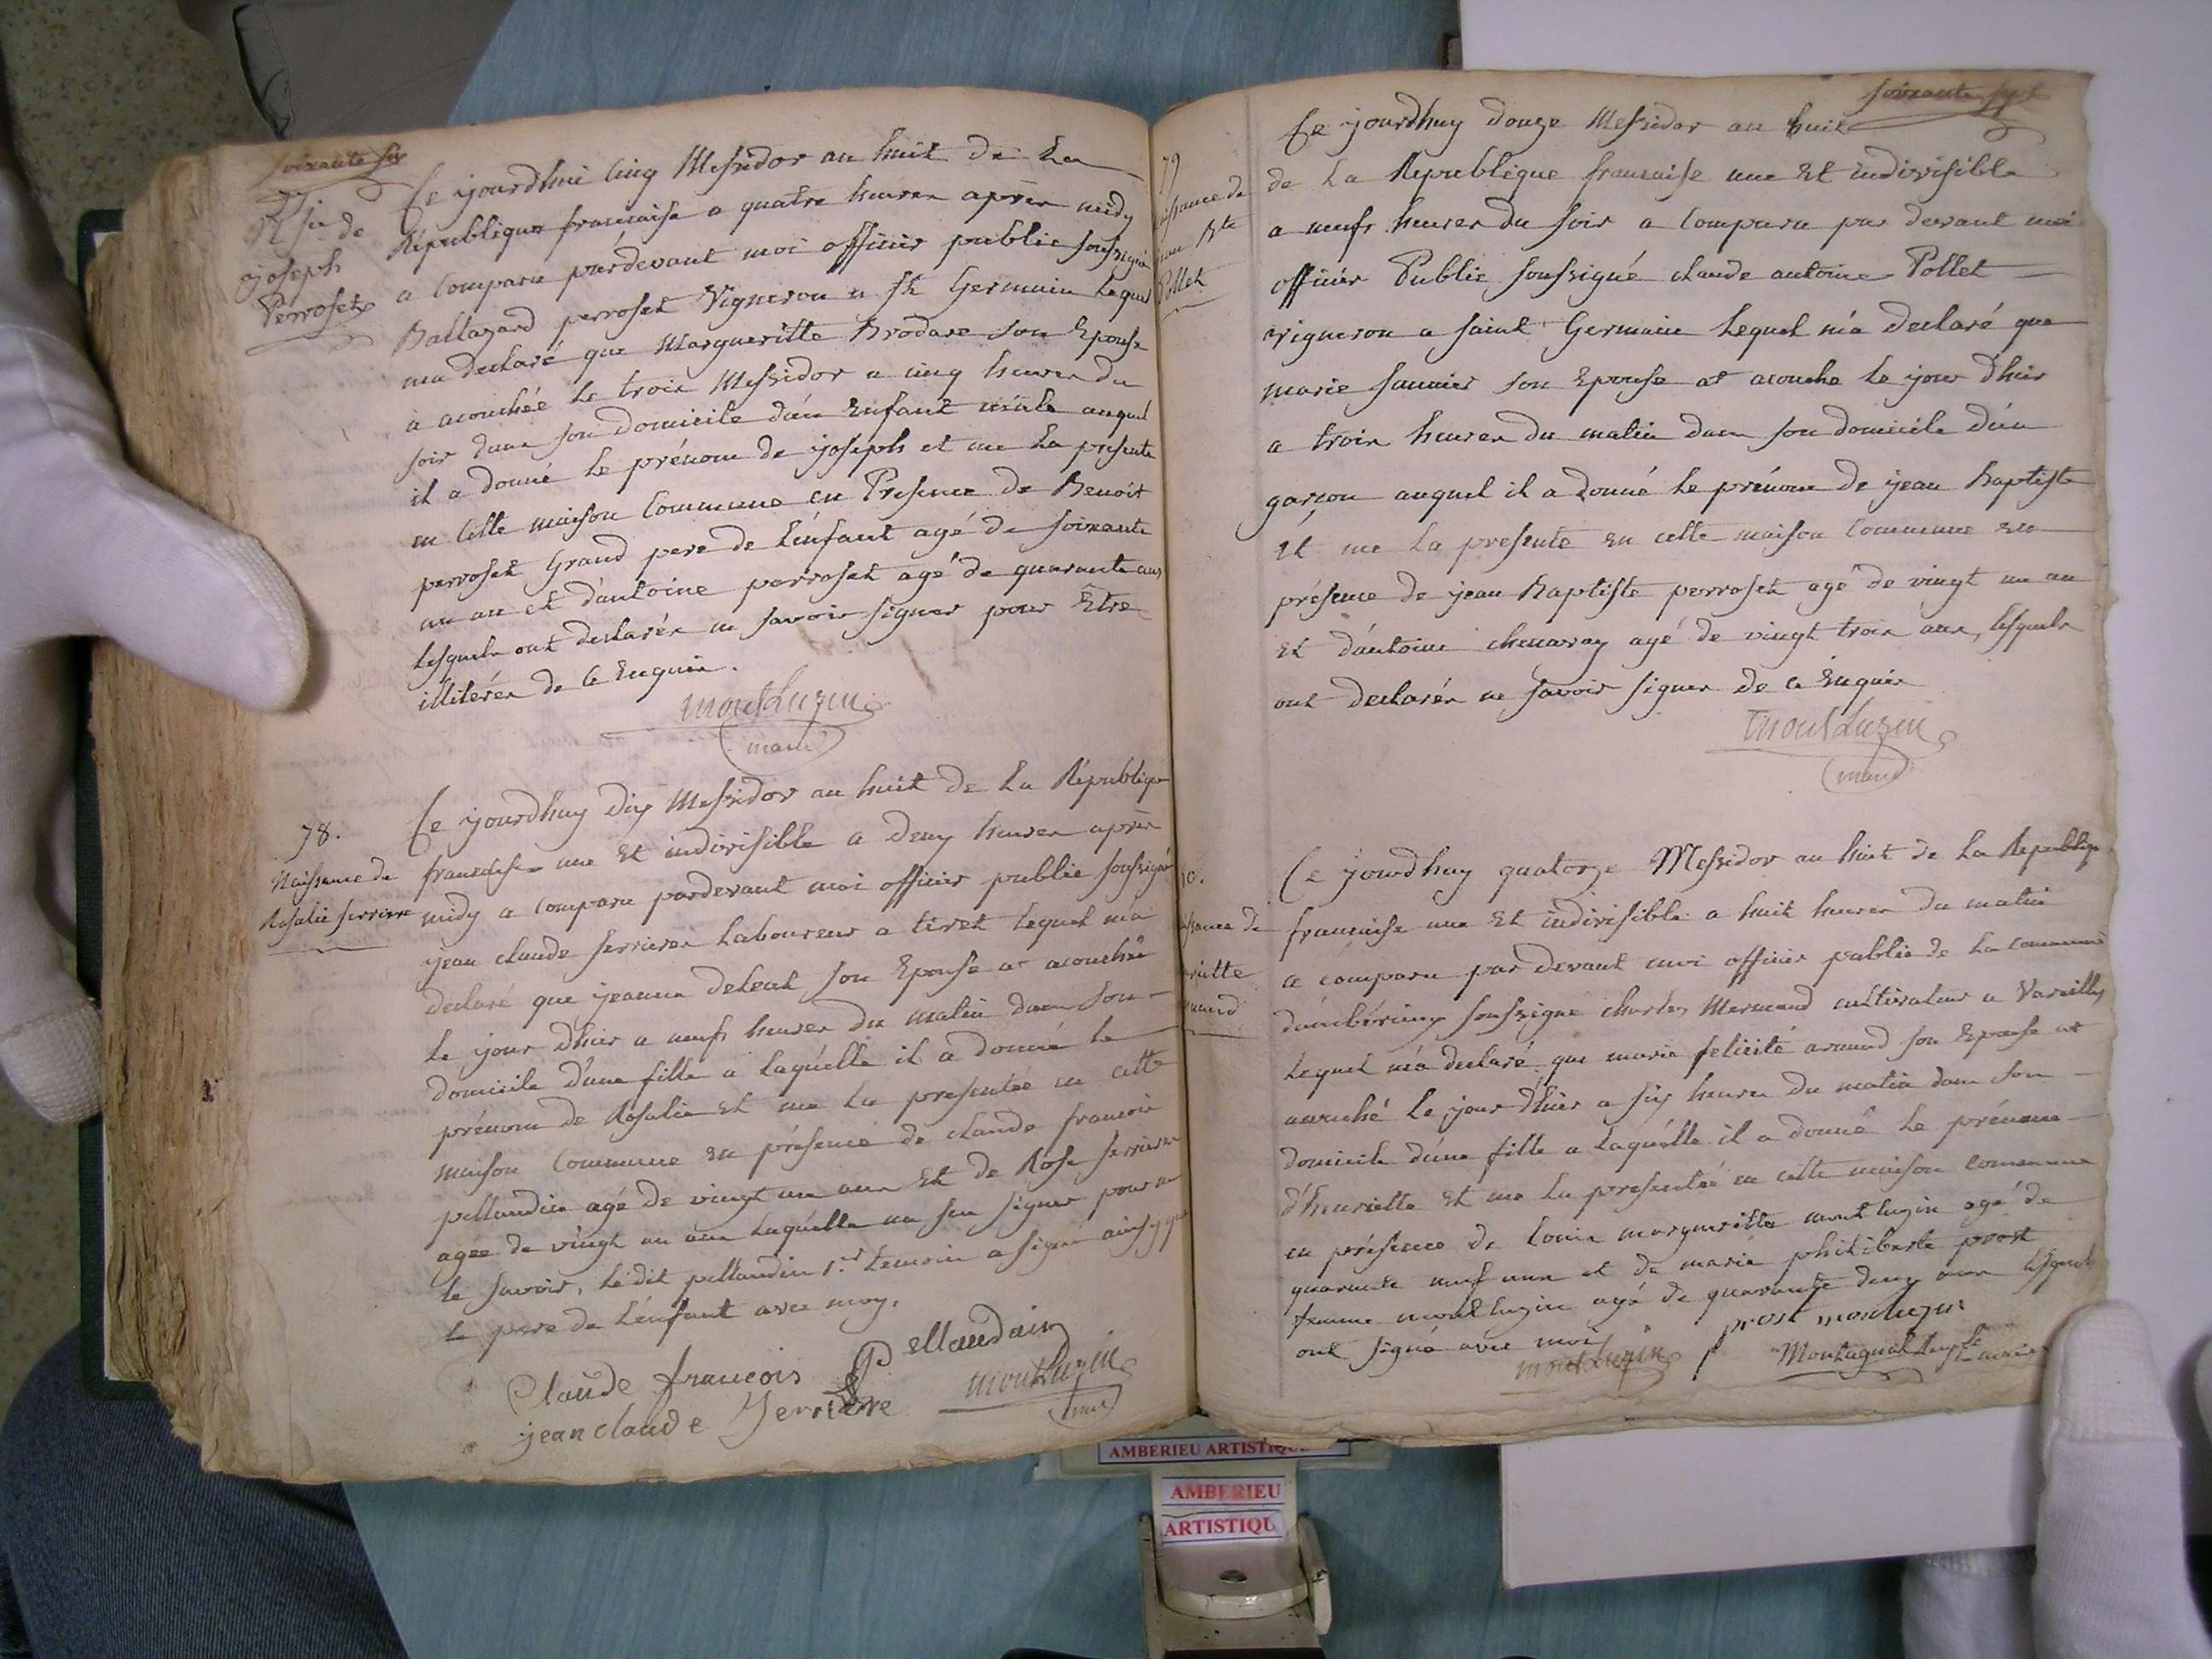 soixante six
Nce de
joseph
Perroset
Ce jourdhui cinq Messidor an huit de La
République francaise a quatre heures après midy
a comparu pardevant moi officier public soussigné
Baltazard perroset Vigneron a St Germain Lequel
ma declaré que Margueritte Brodare son Epouse
à acouchée Le trois Messidor a cinq heures du
soir dans son domicile d'un Enfant mâle auquel
il a donné le prénom de joseph et me La présenté
en Cette maison Commune en Presence de Benoit
perroset Grand pere de L'énfant agé de soixante
un an et d'antoine perroset agé de quarante ans
Lesquels ont declarés ne savoir signer pour Etre
illitérés de ce Enquis.
montluzin
maire
78.
Naissance de
Rosalie serriere
Ce jourdhuy dix Messidor an huit de La République
francaise une Et indivisible a deux heures après
midy a comparu pardevant moi officier public soussigné
jean claude serrieres Laboureur a tiret Lequel m'a
declaré que jeanne detent son Epouse at acouchée
le jour d'hier a neufs heures du matin dans son
domicile d'une fille a laquélle il a donné le
prénom de Rosalie Et me La presentée en cette
maison Commune en présence de claude francois
pellaudin agé de vingt un ans Et de Rose serrieres
agée de vingt un ans Laquélle na seu signer pour ne
le savoir, Le dit pellaudin 1.er temoin a signé ainsy que
le pere de L'énfant avec moy.
Claude francois Pellaudain
jean claude Serriere
montluzin
maire
soixante sept
79
issance de
Bte
Pollet
Ce jourdhuy douze Messidor an huit
de La Republique francaise une Et indivisible
a neufs heures du soir a Comparu par devant moi
officier Public soussigné claude antoine Pollet
vigneron a saint Germain Lequel m'a declaré que
marie saunier son Epouse at acouche Le jour d'hier
a trois heures du matin dans son domicile d'un
garçon auquel il a donné le prénom de jean Baptiste
Et me La presenté en cette maison Commune en
présence de jean Baptiste perroset agé de vingt un an
Et d'antoine chenavay agé de vingt trois ans, lesquels
ont declarés ne savoir signer de ce Enquis
montluzin
maire
issance de
riette
mand
Ce jourdhuy quatorze Messidor an huit de La Republique
francaise une Et indivisible a huit heures du matin
a comparu par devant moi officier public de La commune
d'ambérieux soussigne charles Mermand cultivateur a Vareilles
Lequel m'a declaré que marie felicité armand son Epouse at
acouché Le jour d'hier a six heures du matin dans son
domicile d'une fille a laquélle il a donné Le prénom
d'henriette Et me La presentée en cette maison commune
en présence de Louis margueritte montluzin agé de
quarante neuf ans et de marie philiberte prost
femme montluzin agé de quarante deux ans Lesquels
ont signé avec moi
prost montluzin
montluzin
AMBERIEU ARTISTIQUE
AMBERIEU
ARTISTIQU